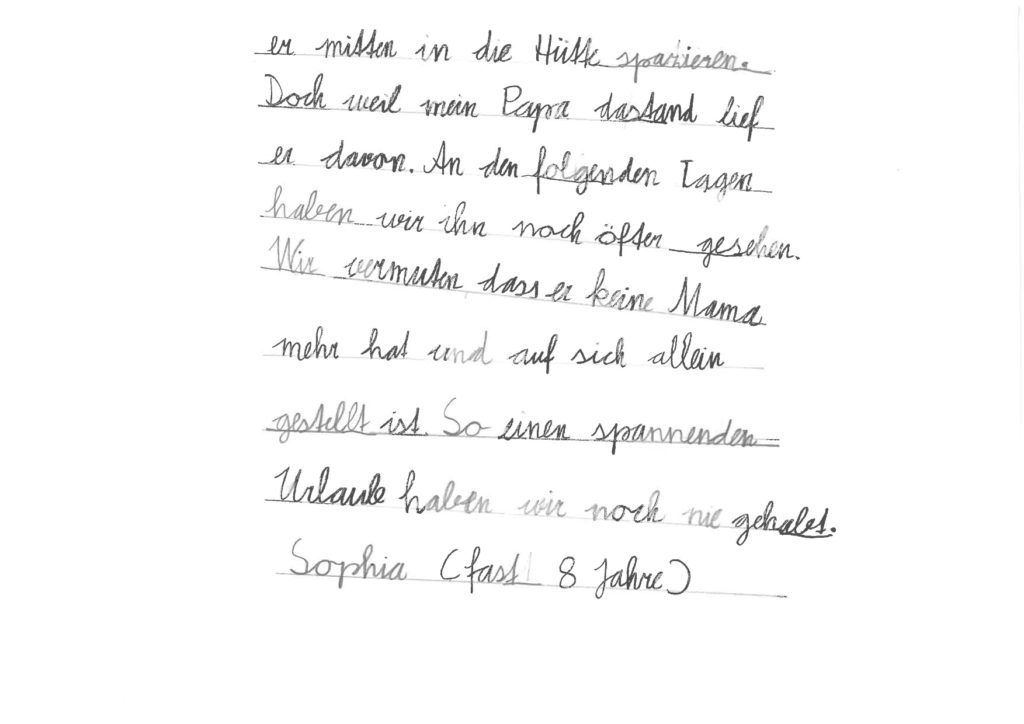 er mitten in die Hütte spazieren.
Doch weil mein Papa dastand lief
er davon. An den folgenden Tagen
haben wir ihn noch öfter gesehen.
Wir vermuten dass er keine Mama
mehr hat und auf sich allein
gestellt ist. So einen spannenden
Urlaub haben wir noch nie gehabt.
Sophia (fast 8 Jahre)